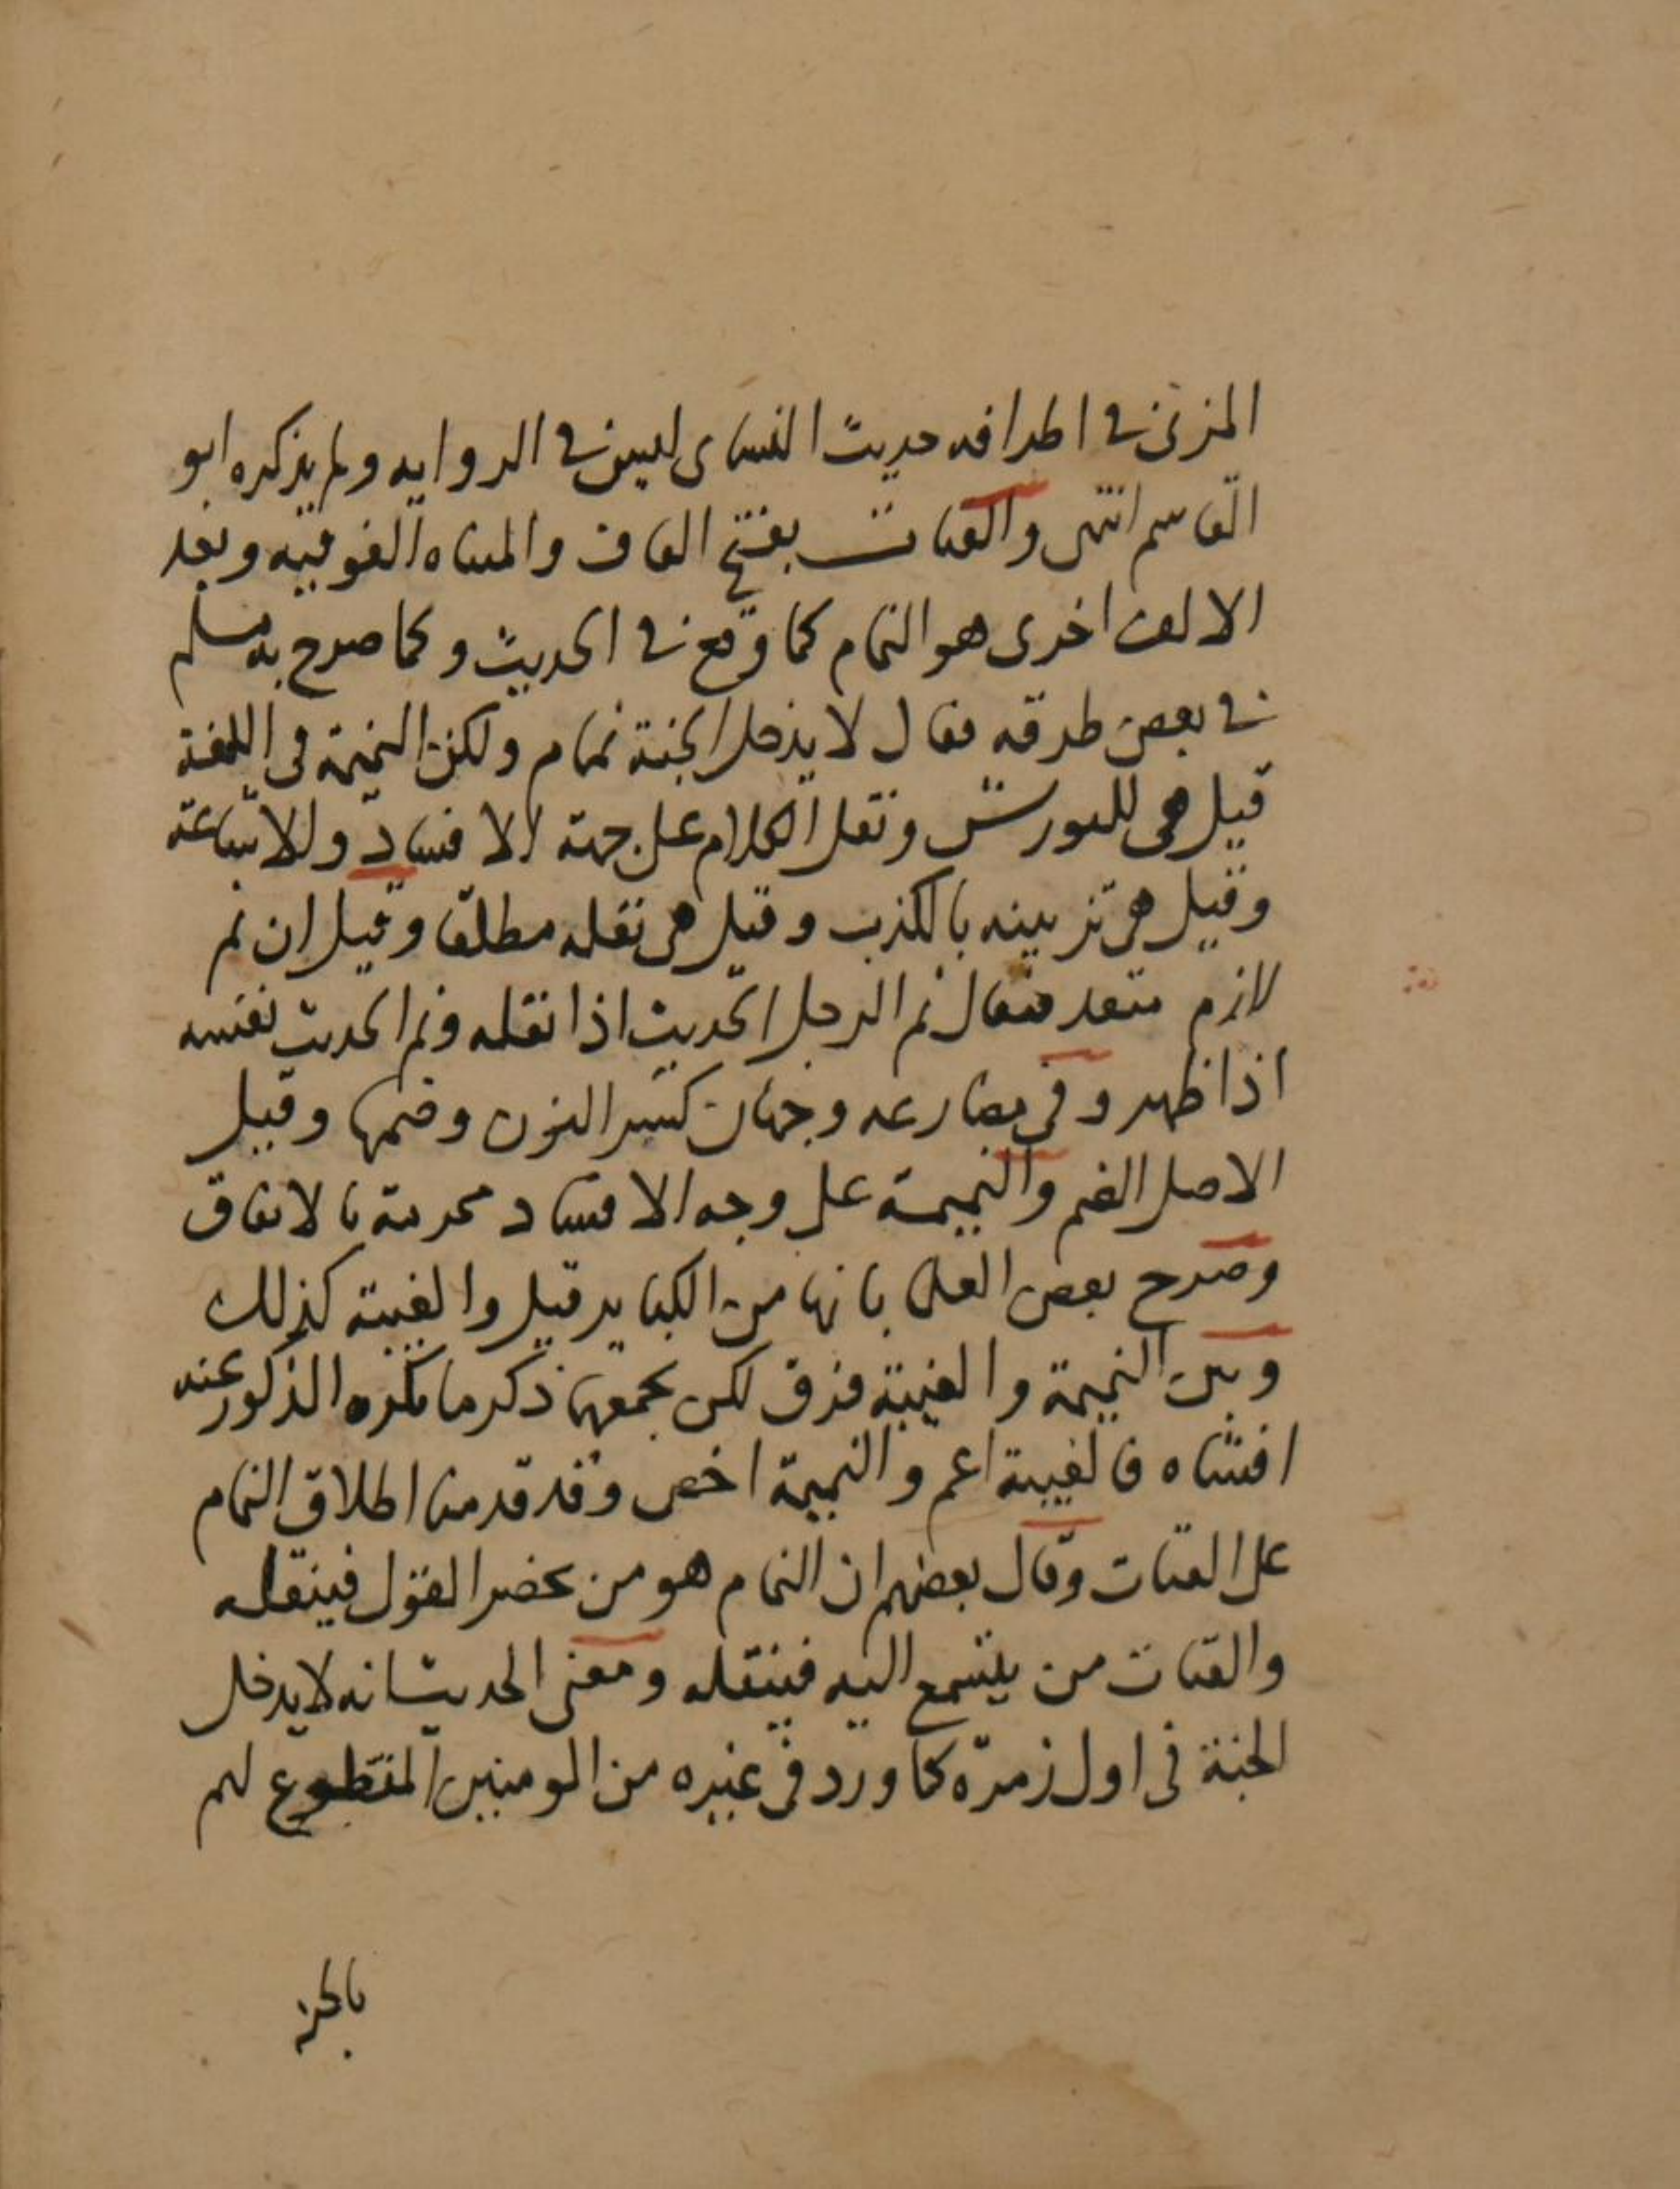 المزنى في اطرافه حديث النساى ليس في الروايه ولم يذكره ابو
القاسم انتهى والقتات بفتح القاف والمثناه الفوقيه وبعد
الالف اخرى هو النمام كما وقع في الحديث وكما صرح به مسلم
في بعض طرقه فقال لا يدخل الجنة نمام ولكن النميمة فى اللغة
قيل هى نقل الكلام على جهة الافساد والاشاعة
وقيل هى تزيينه بالكذب وقيل هى نقله مطلقا وقيل ان نم
لازم متعد فيقال نم الرجل الحديث اذا نقله ونم الحديث نفسه
اذا ظهر وفى مضارعه وجهان كسر النون وضمها وقيل
الاصل الضم والنميمة على وجه الافساد محرمة بالاتفاق
وصرح بعض العلما بانها من الكباير قيل والغيبة كذلك
وبين النميمة والغيبة فرق لكن يجمعهما ذكر ما يكره المذكور عنه
افشاه فالغيبة اعم والنميمة اخص وقد قدمنا اطلاق النمام
على القتات وقال بعضهم ان النمام هو من يحضر القول فينقله
والقتات من يتسمع اليه فينقله ومعنى الحديث انه لا يدخل
الجنة فى اول زمرة كما ورد فى غيره من المومنين المقطوع لهم
بالجنة